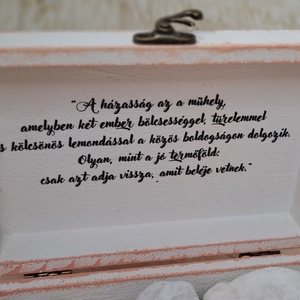 "A házasság az a műhely,
amelyben két ember bölcsességgel, türelemmel
s kölcsönös lemondással a közös boldogságon dolgozik.
Olyan, mint a jó termőföld:
csak azt adja vissza, amit beléje vetnek."